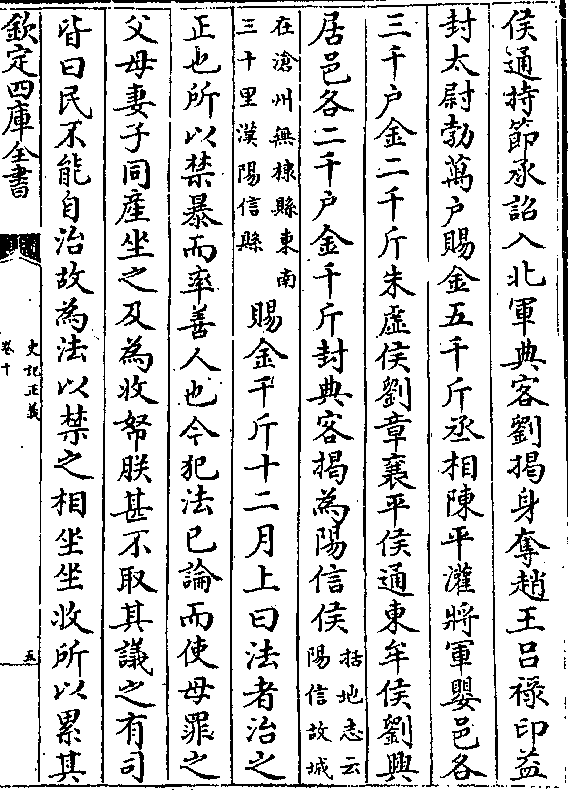 侯通持節承詔入北軍典客劉揭身奪趙王吕禄印益
封太尉勃萬户賜金五千斤丞相陳平灌將軍嬰邑各
三千户金二千斤朱虚侯劉章襄平侯通東牟侯劉興
居邑各二千户金千斤封典客揭為陽信侯括地志云
陽信故城
在滄州無棣縣東南
三十里漢陽信縣賜金千斤十二月上曰法者治之
正也所以禁暴而率善人也今犯法已論而使母罪之
父母妻子同產坐之及為收帑朕甚不取其議之有司
皆曰民不能自治故為法以禁之相坐坐收所以累其
欽定四庫全書
史記正義
卷十
五